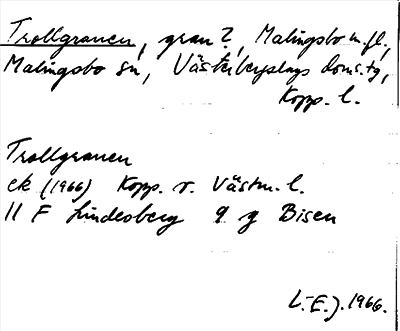 Trollgranen, gran?, Malingsbo m.fl.,
Malingsbo sn, Västerbergslags doms.tg,
Kopp. l.
Trollgranen
ek (1966) Kopp. v. Västm. l.
11 F Lindesberg 9 g Bisen
L.E.J. 1966.